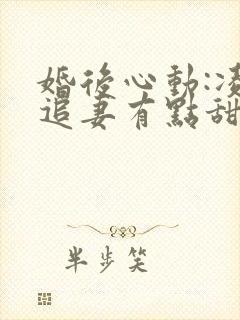 婚後心動:凌
追妻有點甜
半步笑